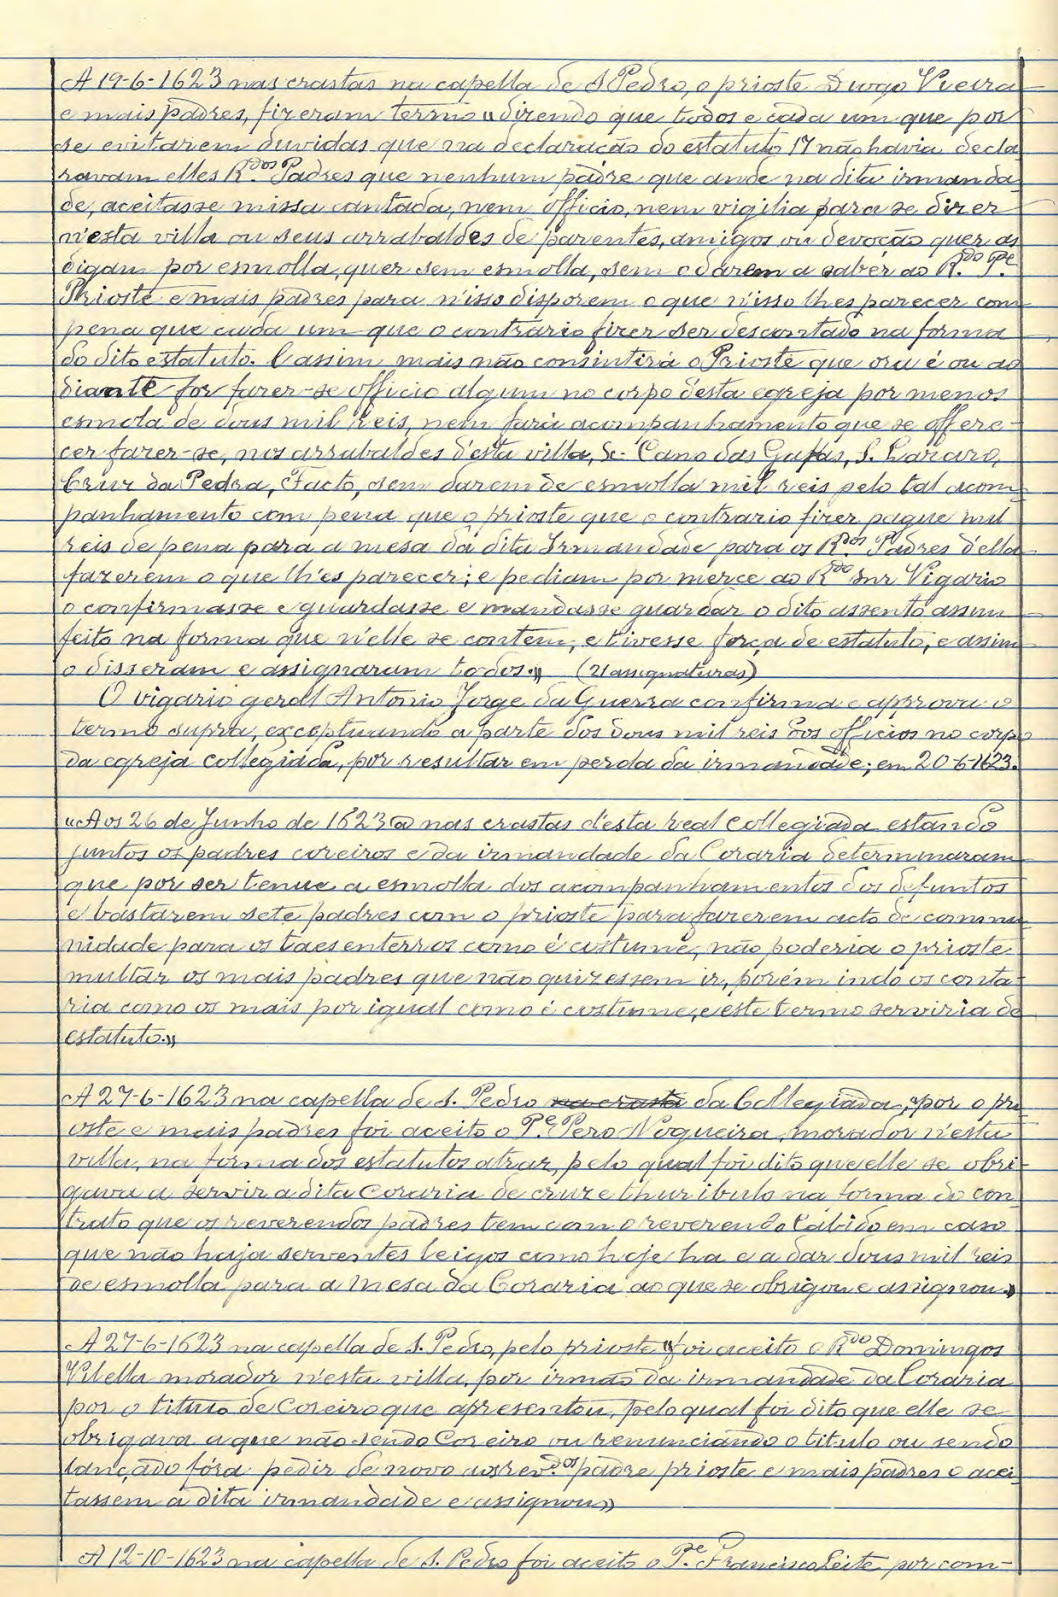 A 19-6-1623 nas crastas na capella de S. Pedro, o prioste Diogo Vieira
e mais padres, fizeram termo «dizendo que todos e cada um que por
se evitarem duvidas que na declaração do estatuto 17 não havia decla-
ravam elles R.dos Padres que nenhum padre que ande na dita irmanda-
de, aceitasse missa cantada, nem officio, nem vigilia para se dizer
n'esta villa ou seus arrabaldes de parentes, amigos ou devoção quer as
digam por esmolla, quer sem esmolla, sem o darem a saber ao R.do P.e
Prioste e mais padres para n'isso disporem o que n'isso lhes parecer com
pena que cada um que o contrario fizer ser descontado na forma
do dito estatuto. E assim mais não consintirá o Prioste que ora é ou ao
diante for fazer-se officio algum no corpo d'esta egreja por menos
esmola de dous mil reis, nem fará acompanhamento que se offere-
cer fazer-se, nos arrabaldes d'esta villa, sc. Cano das Gafas, S. Lazaro,
Cruz da Pedra, Facto, sem darem de esmolla mil reis pelo tal acom-
panhamento com pena que o prioste que o contrario fizer pague mil
reis de pena para a mesa da dita Irmandade para os R.dos Padres d'ella
fazerem o que lh'es parecer; e pediam por merce ao R.do Snr Vigario
o confirmasse e guardasse e mandasse guardar o dito assento assim
feito na forma que n'elle se contem, e tivesse força de estatuto, e assim
o disseram e assignaram todos.» (21 assignaturas)
O vigario geral Antonio Jorge da Guerra confirma e approva o
termo supra, exceptuando a parte dos dous mil reis dos officios no corpo
da egreja collegiada, por resultar em perda da irmandade; em 20-6-1623.
«Aos 26 de Junho de 1623 @ nas crastas d'esta real Collegiada estando
juntos os padres coreiros e da irmandade da Coraria determinaram
que por ser tenue a esmolla dos acompanhamentos dos defuntos
e bastarem sete padres com o prioste para fazerem acto de commu-
nidade para os taes enterros como é custume, não poderia o prioste
multar os mais padres que não quizessem ir, porém indo os conta-
ria como os mais por igual como é costume, e este termo serviria de
estatuto.»
A 27-6-1623 na capella de S. Pedro na crasta da Collegiada, «por o pri-
oste e mais padres foi aceito o P.e Pero Nogueira, morador n'esta
villa, na forma dos estatutos atraz, pelo qual foi dito que elle se obri-
gava a servir a dita Coraria de cruz e thuribulo na forma do con-
trato que os reverendos padres tem com o reverendo Cabido em caso
que não haja serventes leigos como hoje ha e a dar dous mil reis
de esmolla para a mesa da Coraria ao que se obrigou e assignou.»
A 27-6-1623 na capella de S. Pedro, pelo prioste «foi aceito o R.do Domingos
Vilella morador n'esta villa, por irmão da irmandade da Coraria
por o titulo de Coreiro que apresentou, pelo qual foi dito que elle se
obrigava a que não sendo Coreiro ou renunciando o titulo ou sendo
lançado fóra pedir de novo aos rev.dos padre prioste e mais padres o acei-
tassem á dita irmandade e assignou»
A 12-10-1623 na capella de S. Pedro foi aceito o P.e Francisco Leite por com-